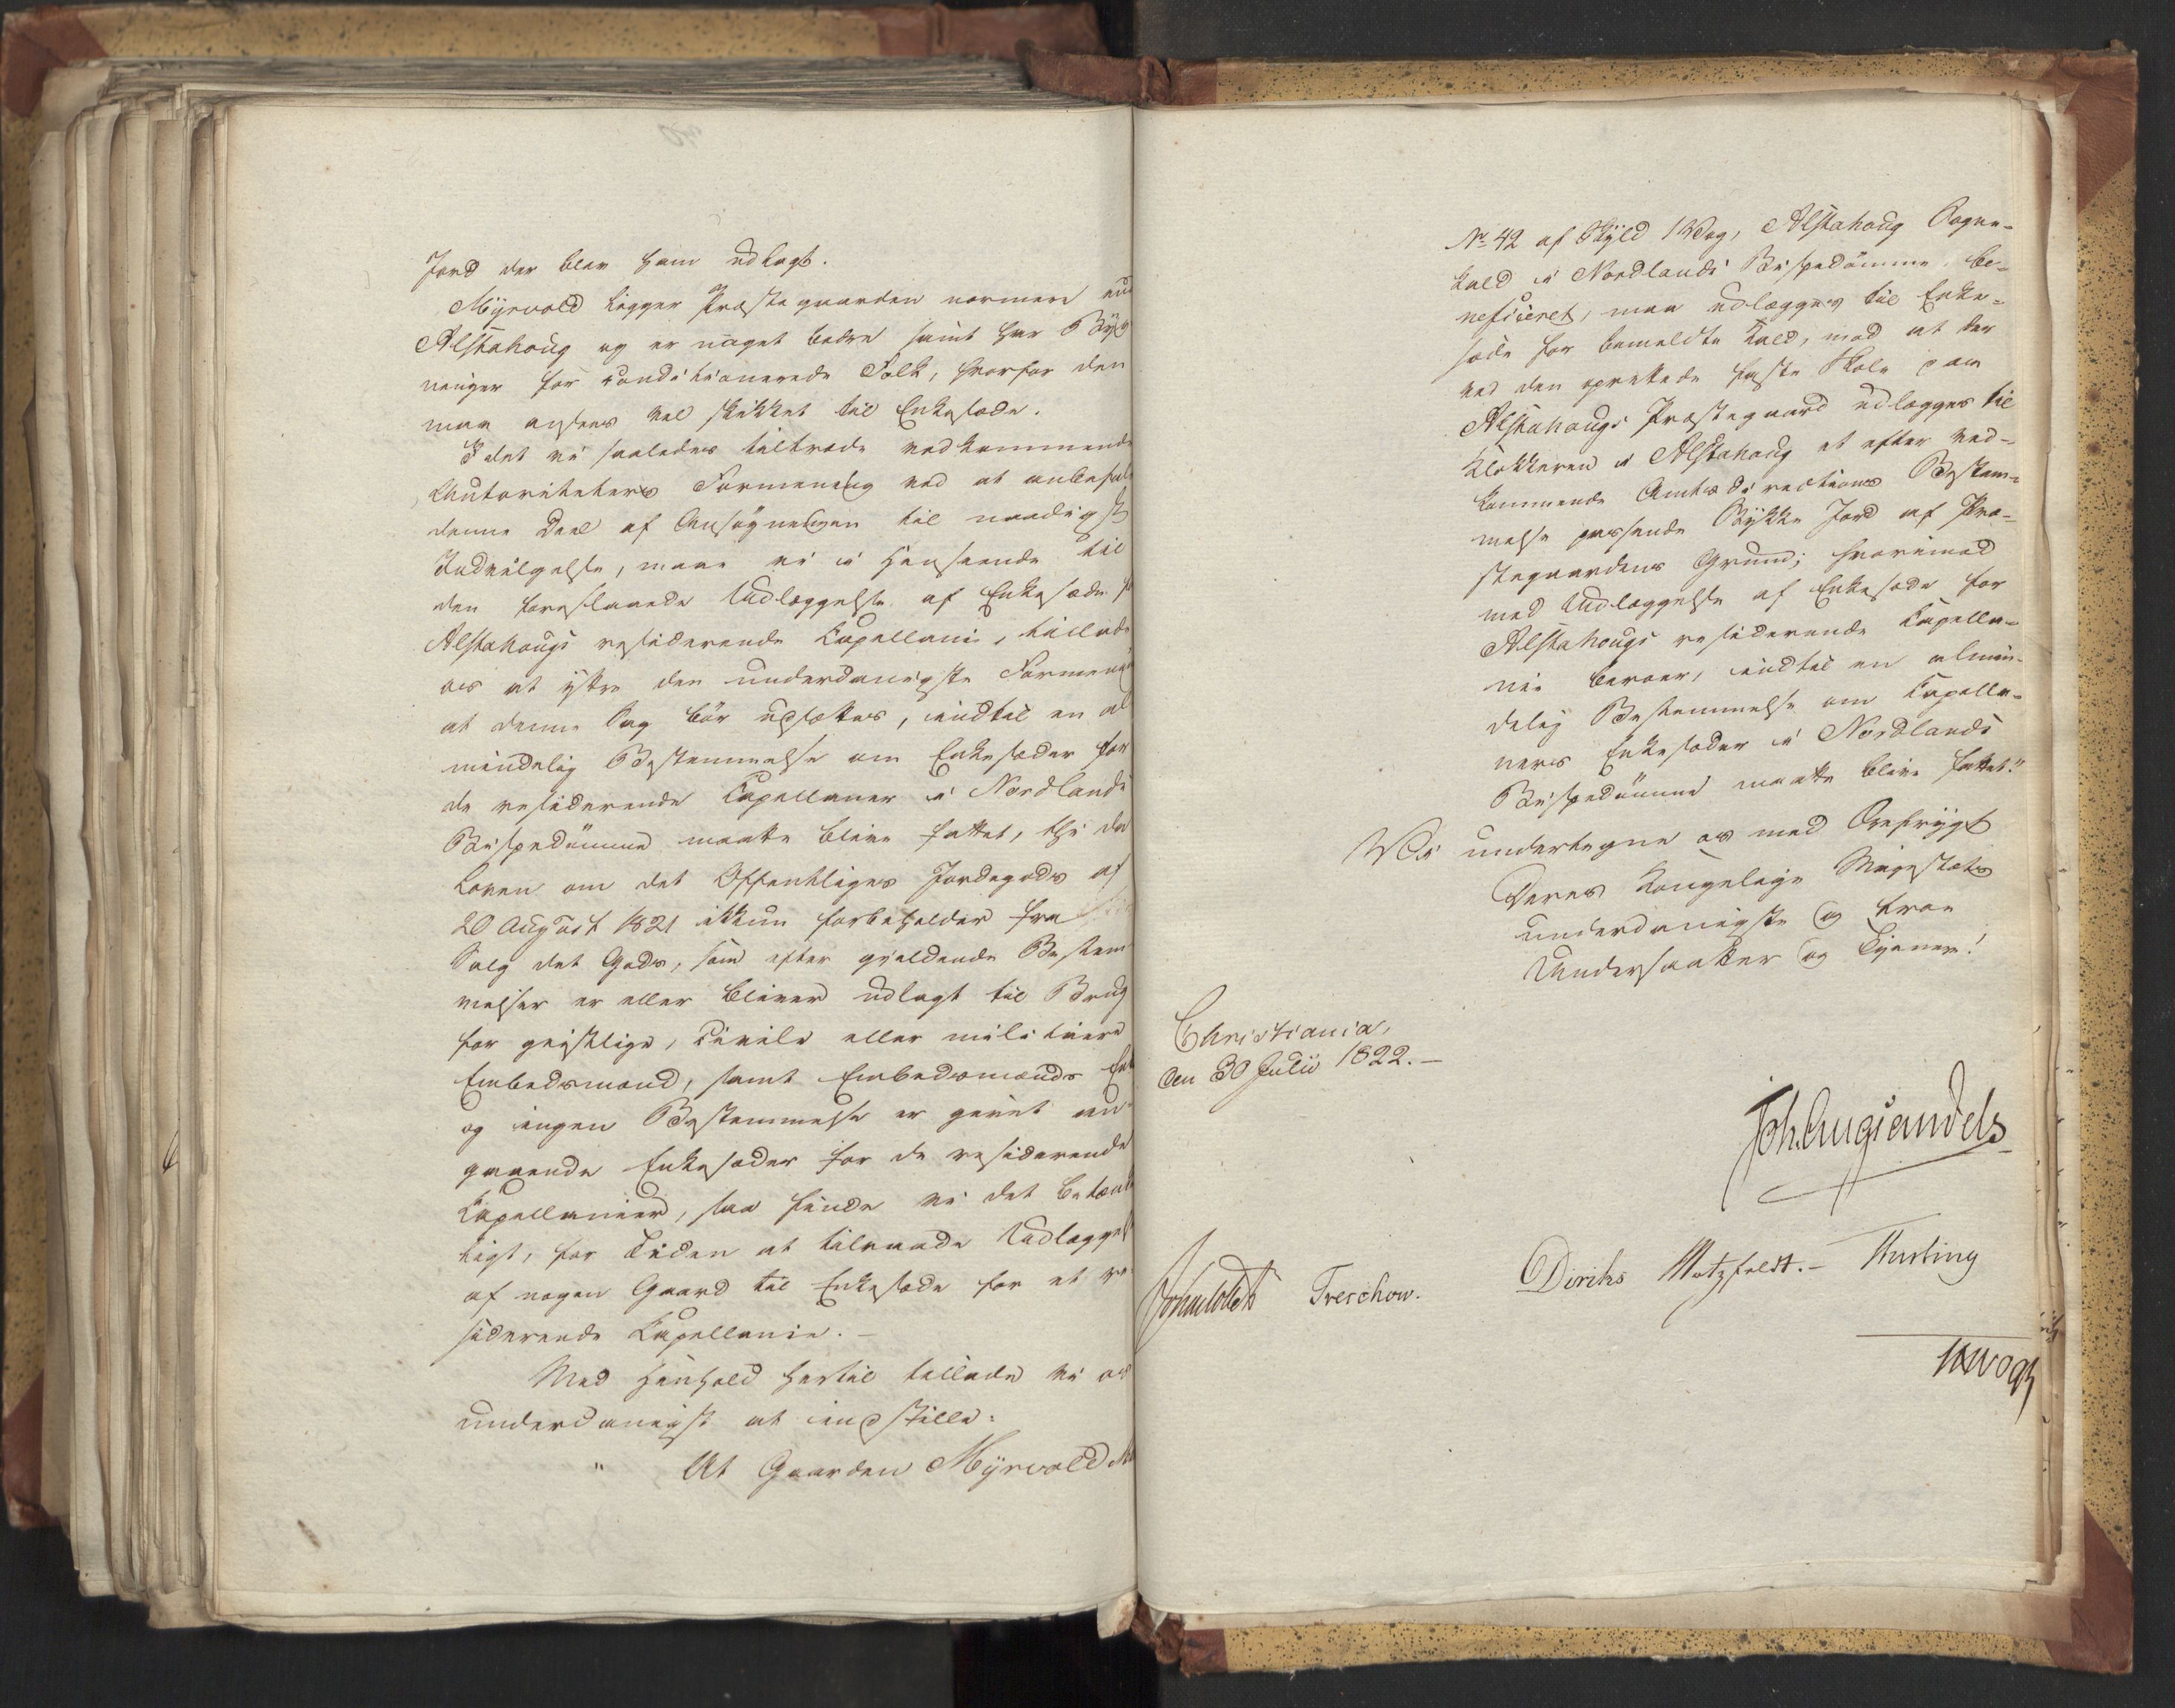 Jord der blev ham udlagt.
Myrvold ligger Præstegaarden nærmere end
Alstahoug og er noget bedre samt har Byg
ninger for conditionerede Folk, hvorfor den
maa ansees vel skikket til Enkesæde.
I det vi saaledes tiltræde vedkommende
Autoriteters Formening ved at anbefale
denne Deel af Ansøgningen til naadigst
Indvilgelse, maae vi i Henseende til
den foreslaaede Udlæggelse af Enkesæde f
Alstahougs residerende Capellani, tillade
os at yttre den underdanigste Formening
at denne Sag bør udsættes, indtil en al
mindelig Bestemmelse om Enkesæder for
de residerende Capellaner i Nordlands
Bispedømme maatte blive fattet, thi da
Loven om det Offentliges Jordegods af
20 August 1821 ikkun forbeholder fra
Salg det Gods, som efter gjældende Bestem
melser er eller bliver udlagt til Brug
for geistlige, civile eller militaire
Embedsmænd, samt Embedsmænds Enk
og ingen Bestemmelse er givet an-
gaaende Enkesæder for de residerende
Capellanier, saa finde vi det betænke
ligt, for Tiden at tilraade Udlæggelse
af nogen Gaard til Enkesæde for et re
siderende Capellanie. –
Med Henhold hertil tillade vi os
underdanigst at indstille:
" At Gaarden Myrvold M
No 42 af Skyld 1 Vog, Alstahoug Sogne-
kald i Nordlands Bispedømme be-
neficeret, maa udlægges til Enke-
sæde for bemeldte Kald, mod at der
ved den oprettede faste Skole paa
Alstahougs Præstegaard udlægges til
Klokkeren i Alstahoug et efter ved-
kommende Amtsdirections Bestem-
melse passende Stykke Jord af Præ-
stegaardens Grund; hvorimod
med Udlæggelse af Enkesæde for
Alstahougs residerende Capella-
nie beroer, indtil en almin-
delig Bestemmelse om Capella-
ners Enkesæder i Nordlands
Bispedømme maatte blive fattet."
Vi undertegne os med Ærefrygt
Deres Kongelige Majestæts
underdanigste og troe
Undersaatter og Tjenere!
Christiania,
den 30 Julii 1822. –
Joh. Aug Sandels
Treschow.
Diriks Motzfeldt. – Krefting
Vogt